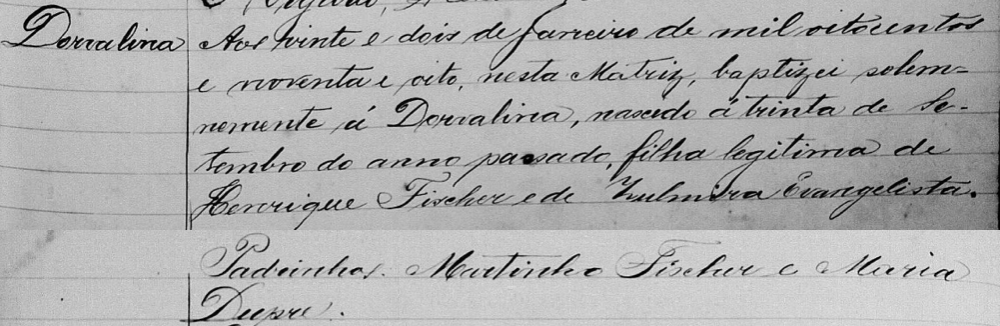 Dorvalina
Aos vinte e dois de Janeiro de mil oitocentos
e noventa e oito, nesta Matriz, baptizei solem-
nemente á Dorvalina, nascida á trinta de Se-
tembro do anno passado, filha legitima de
Henrique Fischer e de Zulmira Evangelista.
Padrinhos. Martinho Fischer e Maria
Dupre.